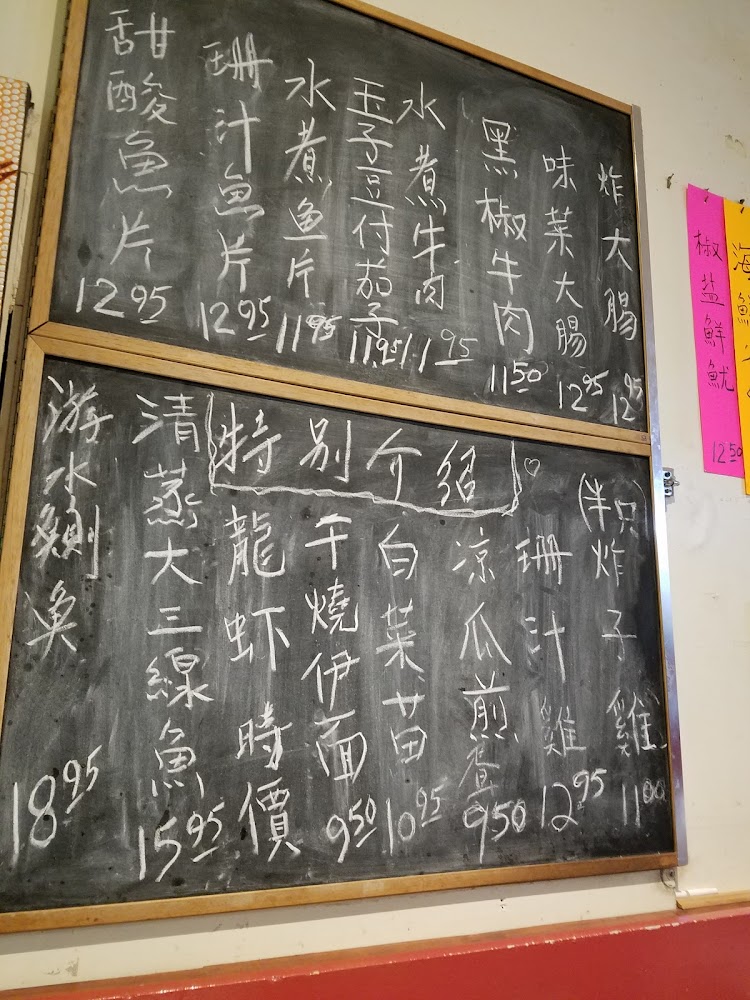 炸大腸 12 95
味菜大腸 12 95
黑椒牛肉 11 50
水煮牛肉 11 95
玉子豆付茄子 11 95
水煮鱼片 11 95
珊汁魚片 12 95
甜酸魚片 12 95
特別介紹
(半只)炸子雞 11 00
珊汁雞 12 95
涼瓜煎蛋 9 50
白菜苗 10 95
干燒伊面 9 50
龍虾時價
清蒸大三線魚 15 95
游水鰂魚 18 95
海鮮
椒盐鮮魷 12 50